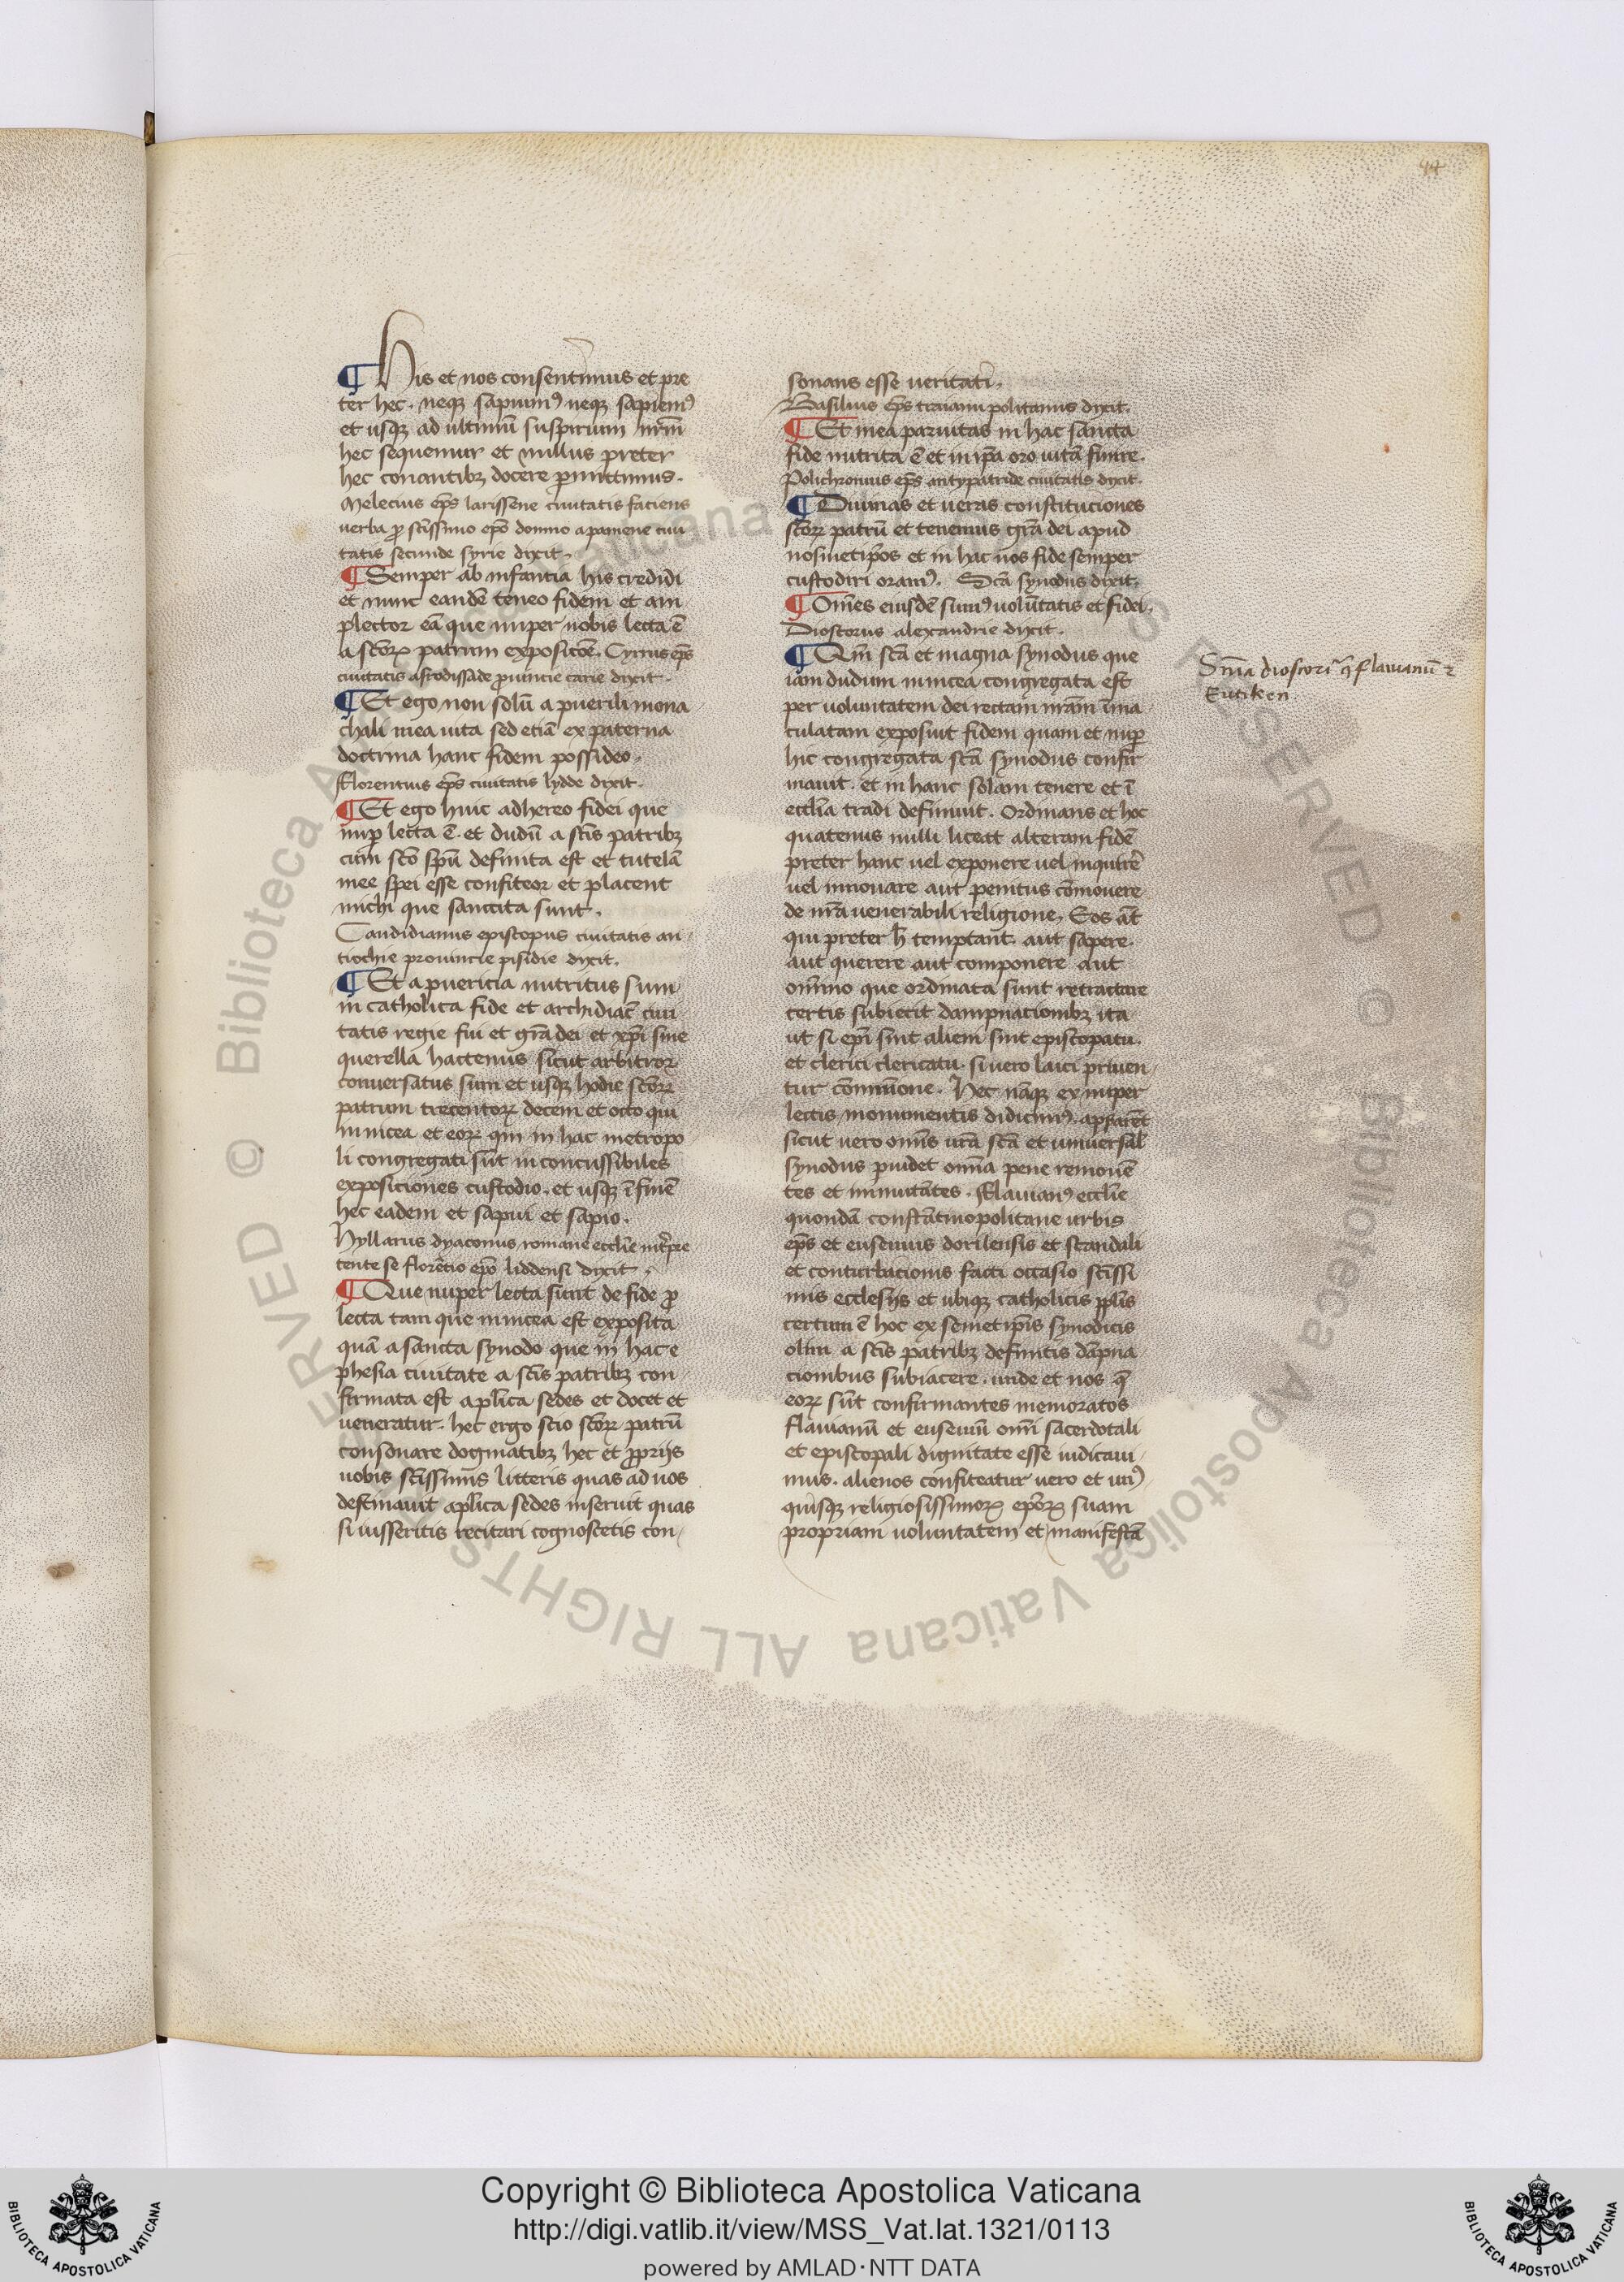 44
¶ His et nos consentimus et pre
ter hec. neqꝫ sapuimꝰ neqꝫ sapiemꝰ
et usqꝫ ad ultimū suspirium nr̄m
hec sequemur et nullus preter
hec conantibꝫ docere ꝑmittimus.
Melecius ep̄s larissene ciuitatis faciens
uerba ꝓ sc̄issimo ep̄o domno apamene ciui
tatis secunde syrie dixit.
¶ Semper ab infantia his credidi
et nunc eandē teneo fidem et am
plector eā que nuper nobis lecta ē
a sc̄oꝝ patrum exposicōe. Cyrus ep̄s
ciuitatis afrodissade ꝓuincie carie dixit.
¶ Et ego non solū a puerili mona
chali mea uita sed etiā ex paterna
doctrina hanc fidem possideo.
Florentius ep̄s ciuitatis lydde dixit.
¶ Et ego huic adhereo fidei que
nuꝑ lecta ē. et dudū a sc̄is patribꝫ
cum sc̄o sp̄u definita est et tutelā
mee spei esse confiteor et placent
michi que sanccita sunt.
Candidianus episcopus ciuitatis an
tiochie prouincie pisidie dixit.
¶ Et a puericia nutritus sum
in catholica fide et archidiac̄ ciui
tatis regie fui et gr̄a dei et xp̄i sine
querella hactenus sicut arbitror
conuersatus sum et usqꝫ hodie sc̄oꝝ
patrum trecentoꝝ decem et octo qui
in nicea et eoꝝ qui in hac metropo
li congregati sūt inconcussibiles
exposiciones custodio. et usqꝫ ī finē
hec eadem et sapui et sapio.
Hyllarus dyaconus romane eccl̄ie int̄pre
tente se florētio ep̄o liddensi dixit.
¶ Que nuper lecta sunt de fide ꝓ
lecta tam que in nicea est exposita
quā a sancta synodo que in hac e
phesia ciuitate a sc̄is patribꝫ con
firmata est apl̄ica sedes et docet et
ueneratur. hec ergo scio sc̄oꝝ patrū
consonare dogmatibꝫ hec et ꝓprijs
uobis sc̄issimis litteris quas ad uos
destinauit apl̄ica sedes inseruit quas
si iusseritis recitari cognoscetis con
sonans esse ueritati.
Basilius ep̄s traianupolitanus dixit.
¶ Et mea paruitas in hac sancta
fide nutrita ē et in ip̄a oro uitā finire.
Polichronius ep̄s antypatride ciuitatis dixit.
¶ Diuinas et ueras constituciones
sc̄oꝝ patrū et tenemus gr̄a dei apud
nosmetip̄os et in hac nos fide semper
custodiri oramꝰ. Sc̄a synodus dixit.
¶ Om̄es eiusdē sumꝰ uolūtatis et fidei.
Dioscorus alexandrie dixit.
¶ Qm̄ sc̄a et magna synodus que
iam dudum in nicea congregata est
per uoluntatem dei rectam nr̄am īma
culatam exposuit fidem quam et nuꝑ
hic congregata sc̄a synodus confir
mauit. et in hanc solam tenere et ī
eccl̄ia tradi definiuit. Ordinans et hoc
quatenus nulli liceat alteram fidē
preter hanc uel exponere uel inquirere
uel innouare aut penitus cōmouere
de nr̄a uenerabili religione. Eos aūt
qui preter h̄ temptant. aut sapere.
aut querere aut componere aut
om̄ino que ordinata sunt retractare
certis subiecit dampnacionibꝫ ita
ut si ep̄i sint alieni sint episcopatu.
et clerici clericatu. si uero laici priuen
tur cōmunione. Hec nāqꝫ ex nuper
lectis monumentis didicimꝰ. apparēt
sicut uero omīs ur̄a sc̄a et uniuersal̄
synodus ꝓuidet omīa pene remouē
tes et inmutātes. Flauianꝰ eccl̄ie
quondā constātinopolitane urbis
ep̄s et euseuius dorilensis et scandali
et conturbacionis facti occasio sc̄issi
mis ecclesijs et ubiqꝫ catholicis ppl̄is
certum ē hoc ex semetip̄is synodicis
olim a sc̄is patribꝫ definitis dāpna
cionibus subiacere. unde et nos q̄
eoꝝ sūt confirmantes memoratos
flauianū et euseuiū omī sacerdotali
et episcopali dignitate esse iudicaui
mus. alienos confiteatur uero et unꝰ
quisqꝫ religiosissimoꝝ ep̄oꝝ suam
propriam uoluntatem et manifestā
Sn̄ia dioscori ꝯ flauianū ⁊
Eutiken
Copyright © Biblioteca Apostolica Vaticana
http://digi.vatlib.it/view/MSS_Vat.lat.1321/0113
powered by AMLAD·NTT DATA
© Biblioteca Apostolica Vaticana ALL RIGHTS RESERVED
BIBLIOTECA APOSTOLICA VATICANA
BIBLIOTECA APOSTOLICA VATICANA